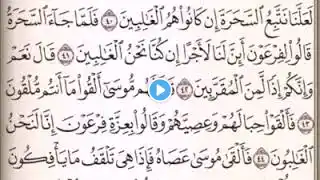 لَعَلَّنَا نَتَّبِعُ ٱلسَّحَرَةَ إِن كَانُوا۟ هُمُ ٱلْغَٰلِبِينَ ٤٠ فَلَمَّا جَآءَ ٱلسَّحَرَةُ
قَالُوا۟ لِفِرْعَوْنَ أَئِنَّ لَنَا لَأَجْرًا إِن كُنَّا نَحْنُ ٱلْغَٰلِبِينَ ٤١ قَالَ نَعَمْ
وَإِنَّكُمْ إِذًا لَّمِنَ ٱلْمُقَرَّبِينَ ٤٢ مُّوسَىٰٓ أَلْقُوا۟ مَآ أَنتُم مُّلْقُونَ
٤٣ فَأَلْقَوْا۟ حِبَالَهُمْ وَعِصِيَّهُمْ وَقَالُوا۟ بِعِزَّةِ فِرْعَوْنَ إِنَّا لَنَحْنُ
ٱلْغَٰلِبُونَ ٤٤ فَأَلْقَىٰ مُوسَىٰ عَصَاهُ فَإِذَا هِىَ تَلْقَفُ مَا يَأْفِكُونَ